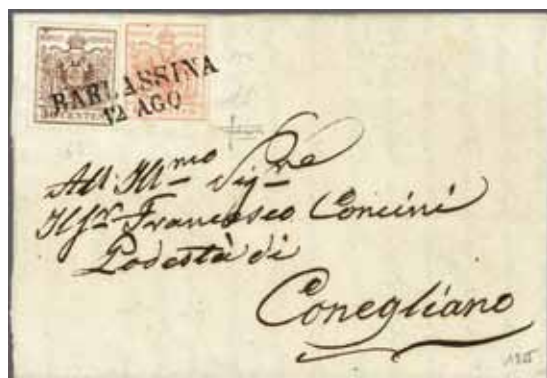 CENTES
BARLASSINA
12 AGO
All Ill.mo Sig.re
Il Sr. Francesco Concini
Podestà di
Conegliano